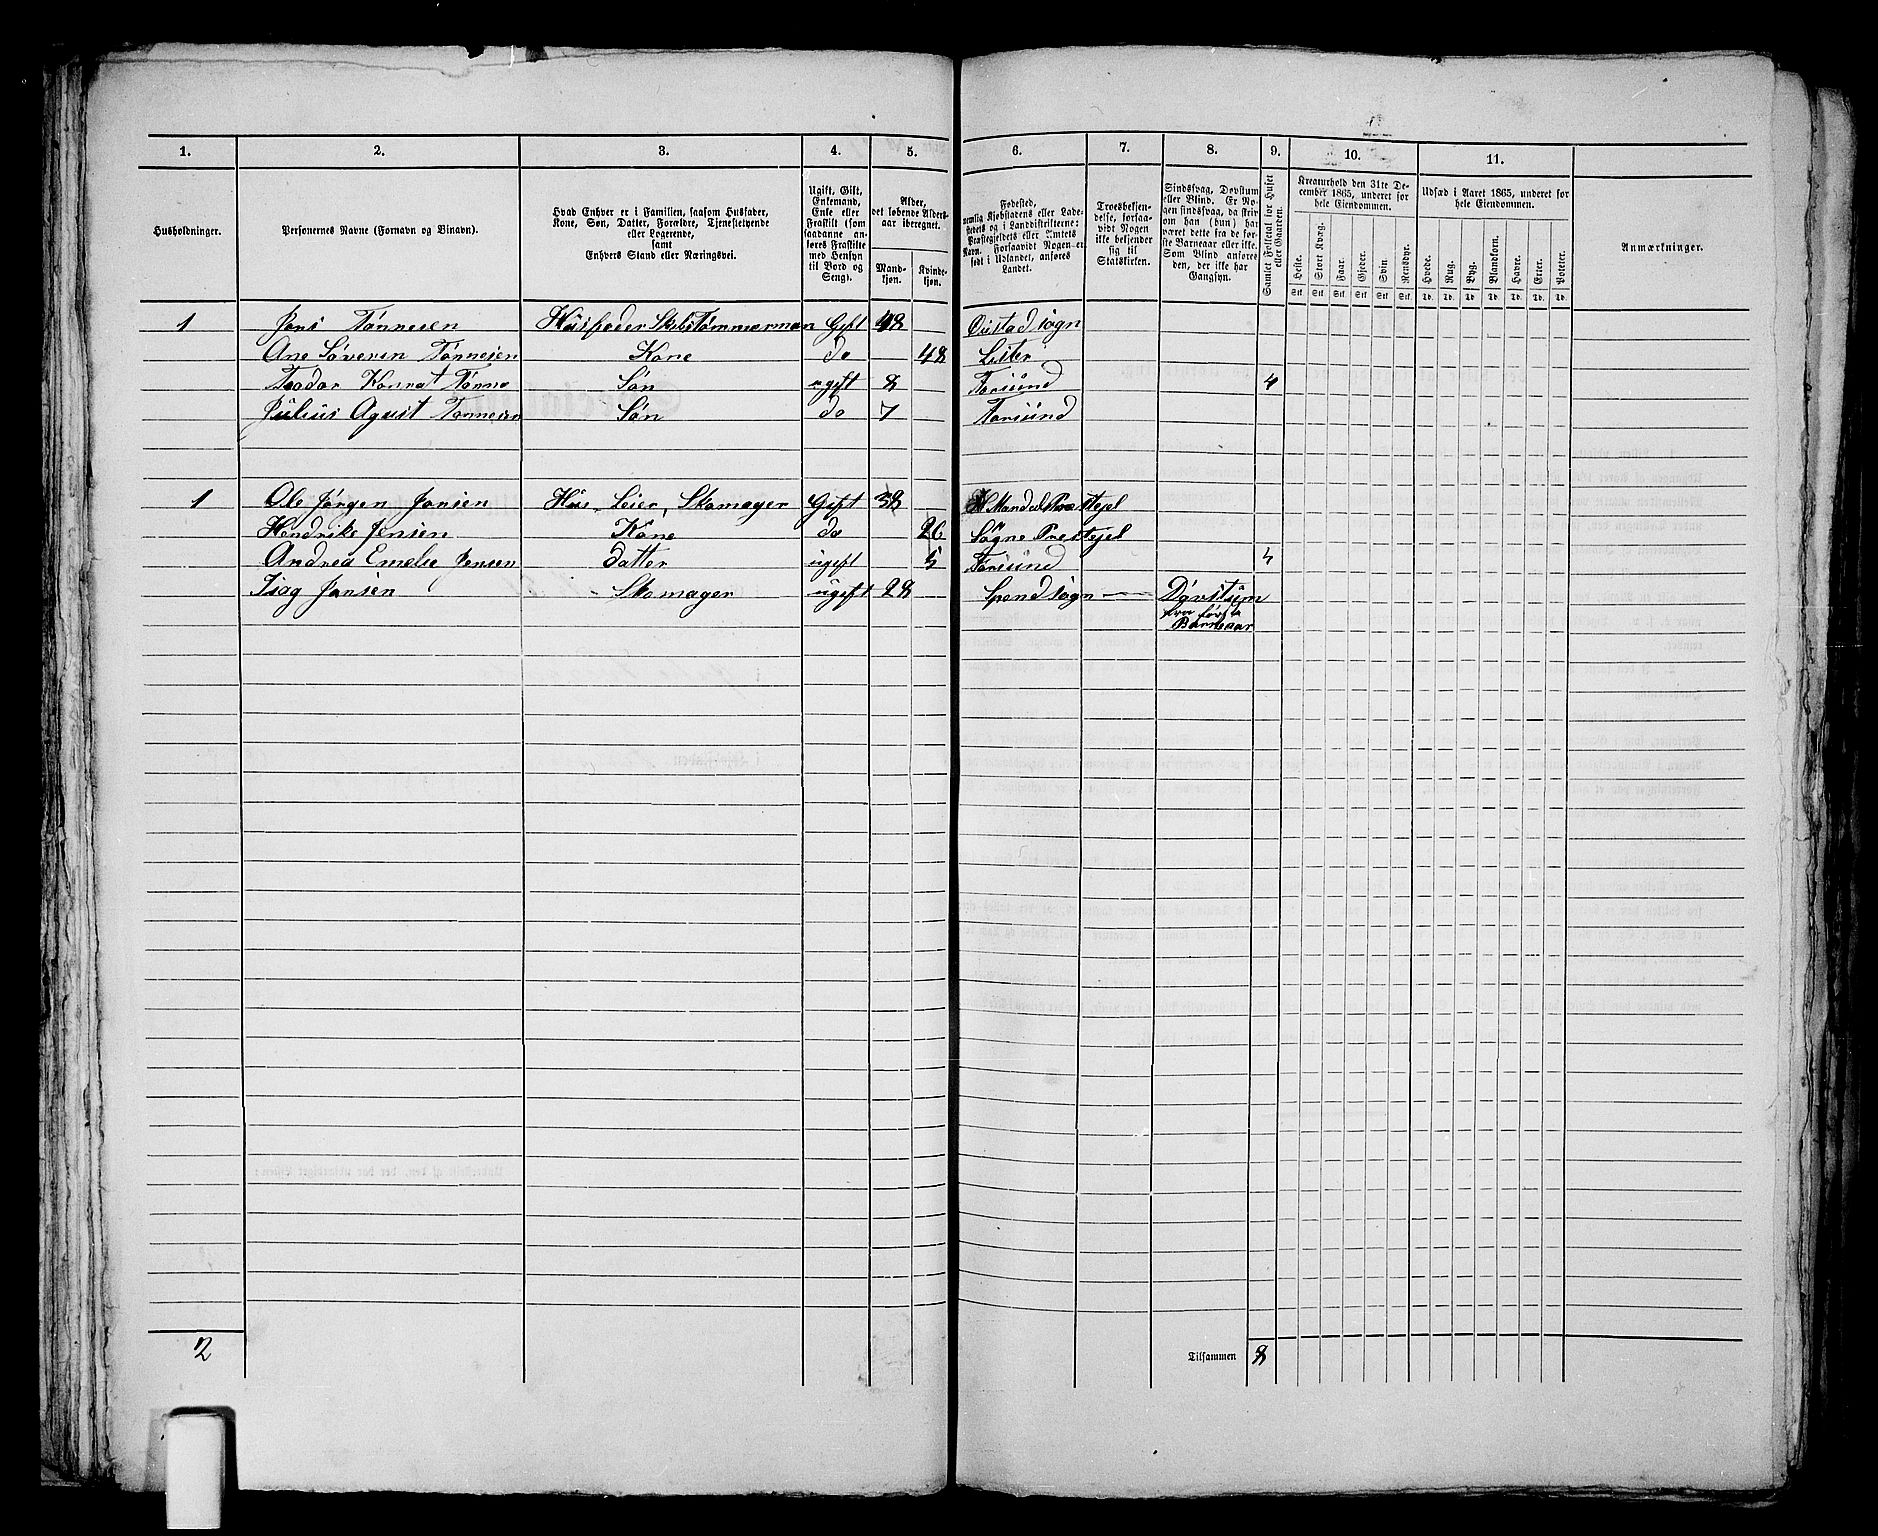 1. 2. 3. 4. 5. 6. 7. 8. 9. 10. 11.
Husholdninger.
Personernes Navne (Fornavn og Binavn).
Hvad Enhver er i Familien, saasom Husfader,
Kone, Søn, Datter, Forældre, Tjenestetyende
eller Logerende,
samt
Enhvers Stand eller Næringsvei.
Ugift, Gift,
Enkemand,
Enke eller
Fraskilt (som
saadanne an-
føres Fraskilte
med Hensyn
til Bord og
Seng).
Alder,
det løbende Alders-
aar iberegnet.
Mand-
kjøn.
Kvinde-
kjøn.
Fødested,
nemlig Kjøbstadens eller Lade-
stedets og i Landdistrikterne:
Præstegjeldets eller Amtets
Navn. Forsaavidt Nogen er
født i Udlandet, anføres
Landet.
Troesbekjen-
delse, forsaa-
vidt Nogen
ikke bekjender
sig til
Statskirken.
Sindssvag, Døvstum
eller Blind. Er No-
gen sindssvag, da skriv
om han (hun) har
været dette fra de før-
ste Barneaar eller ikke.
Som Blind anføres
den, der ikke har
Gangsyn.
Samlet Folketal for Huset
eller Gaarden.
Kreaturhold den 31te De-
cember 1865, underet for
hele Eiendommen.
Heste. Stort Kvæg. Faar. Gjeder. Svin. Rensdyr.
Stk. Stk. Stk. Stk. Stk. Stk.
Udsæd i Aaret 1865, underet for
hele Eiendommen.
Hvede. Rug. Byg. Blandkorn. Havre. Erter. Poteter.
Td. Td. Td. Td. Td. Td. Td.
Anmærkninger.
1 Jens Tönnesen Husfader Skibstömmerman Gift 48 Oustad sogn
Ane Söveren Tönnesen Kone do 48 Lister
Teodor Konrat Tönne Sön ugift 8 Farsund 4
Julius Agust Tonnesen Sön do 7 Farsund
1 Ole Jörgen Jensen Hus Leier, Skomager Gift 38 Mandal Prestejel
Hendrike Jensen Kone do 26 Sögne Prestejel
Andrea Emelie Jensen Datter ugift 5 Farsund 4
Isag Jensen Skomager ugift 28 Spend sogn Dövstum
fra förste
Barneaar
2 Tilsammen 8